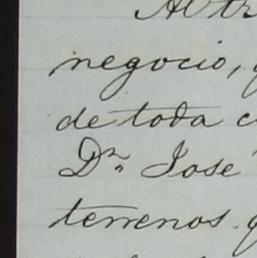 Al tr
negocio,
de toda c
Dn. Jose
terrenos